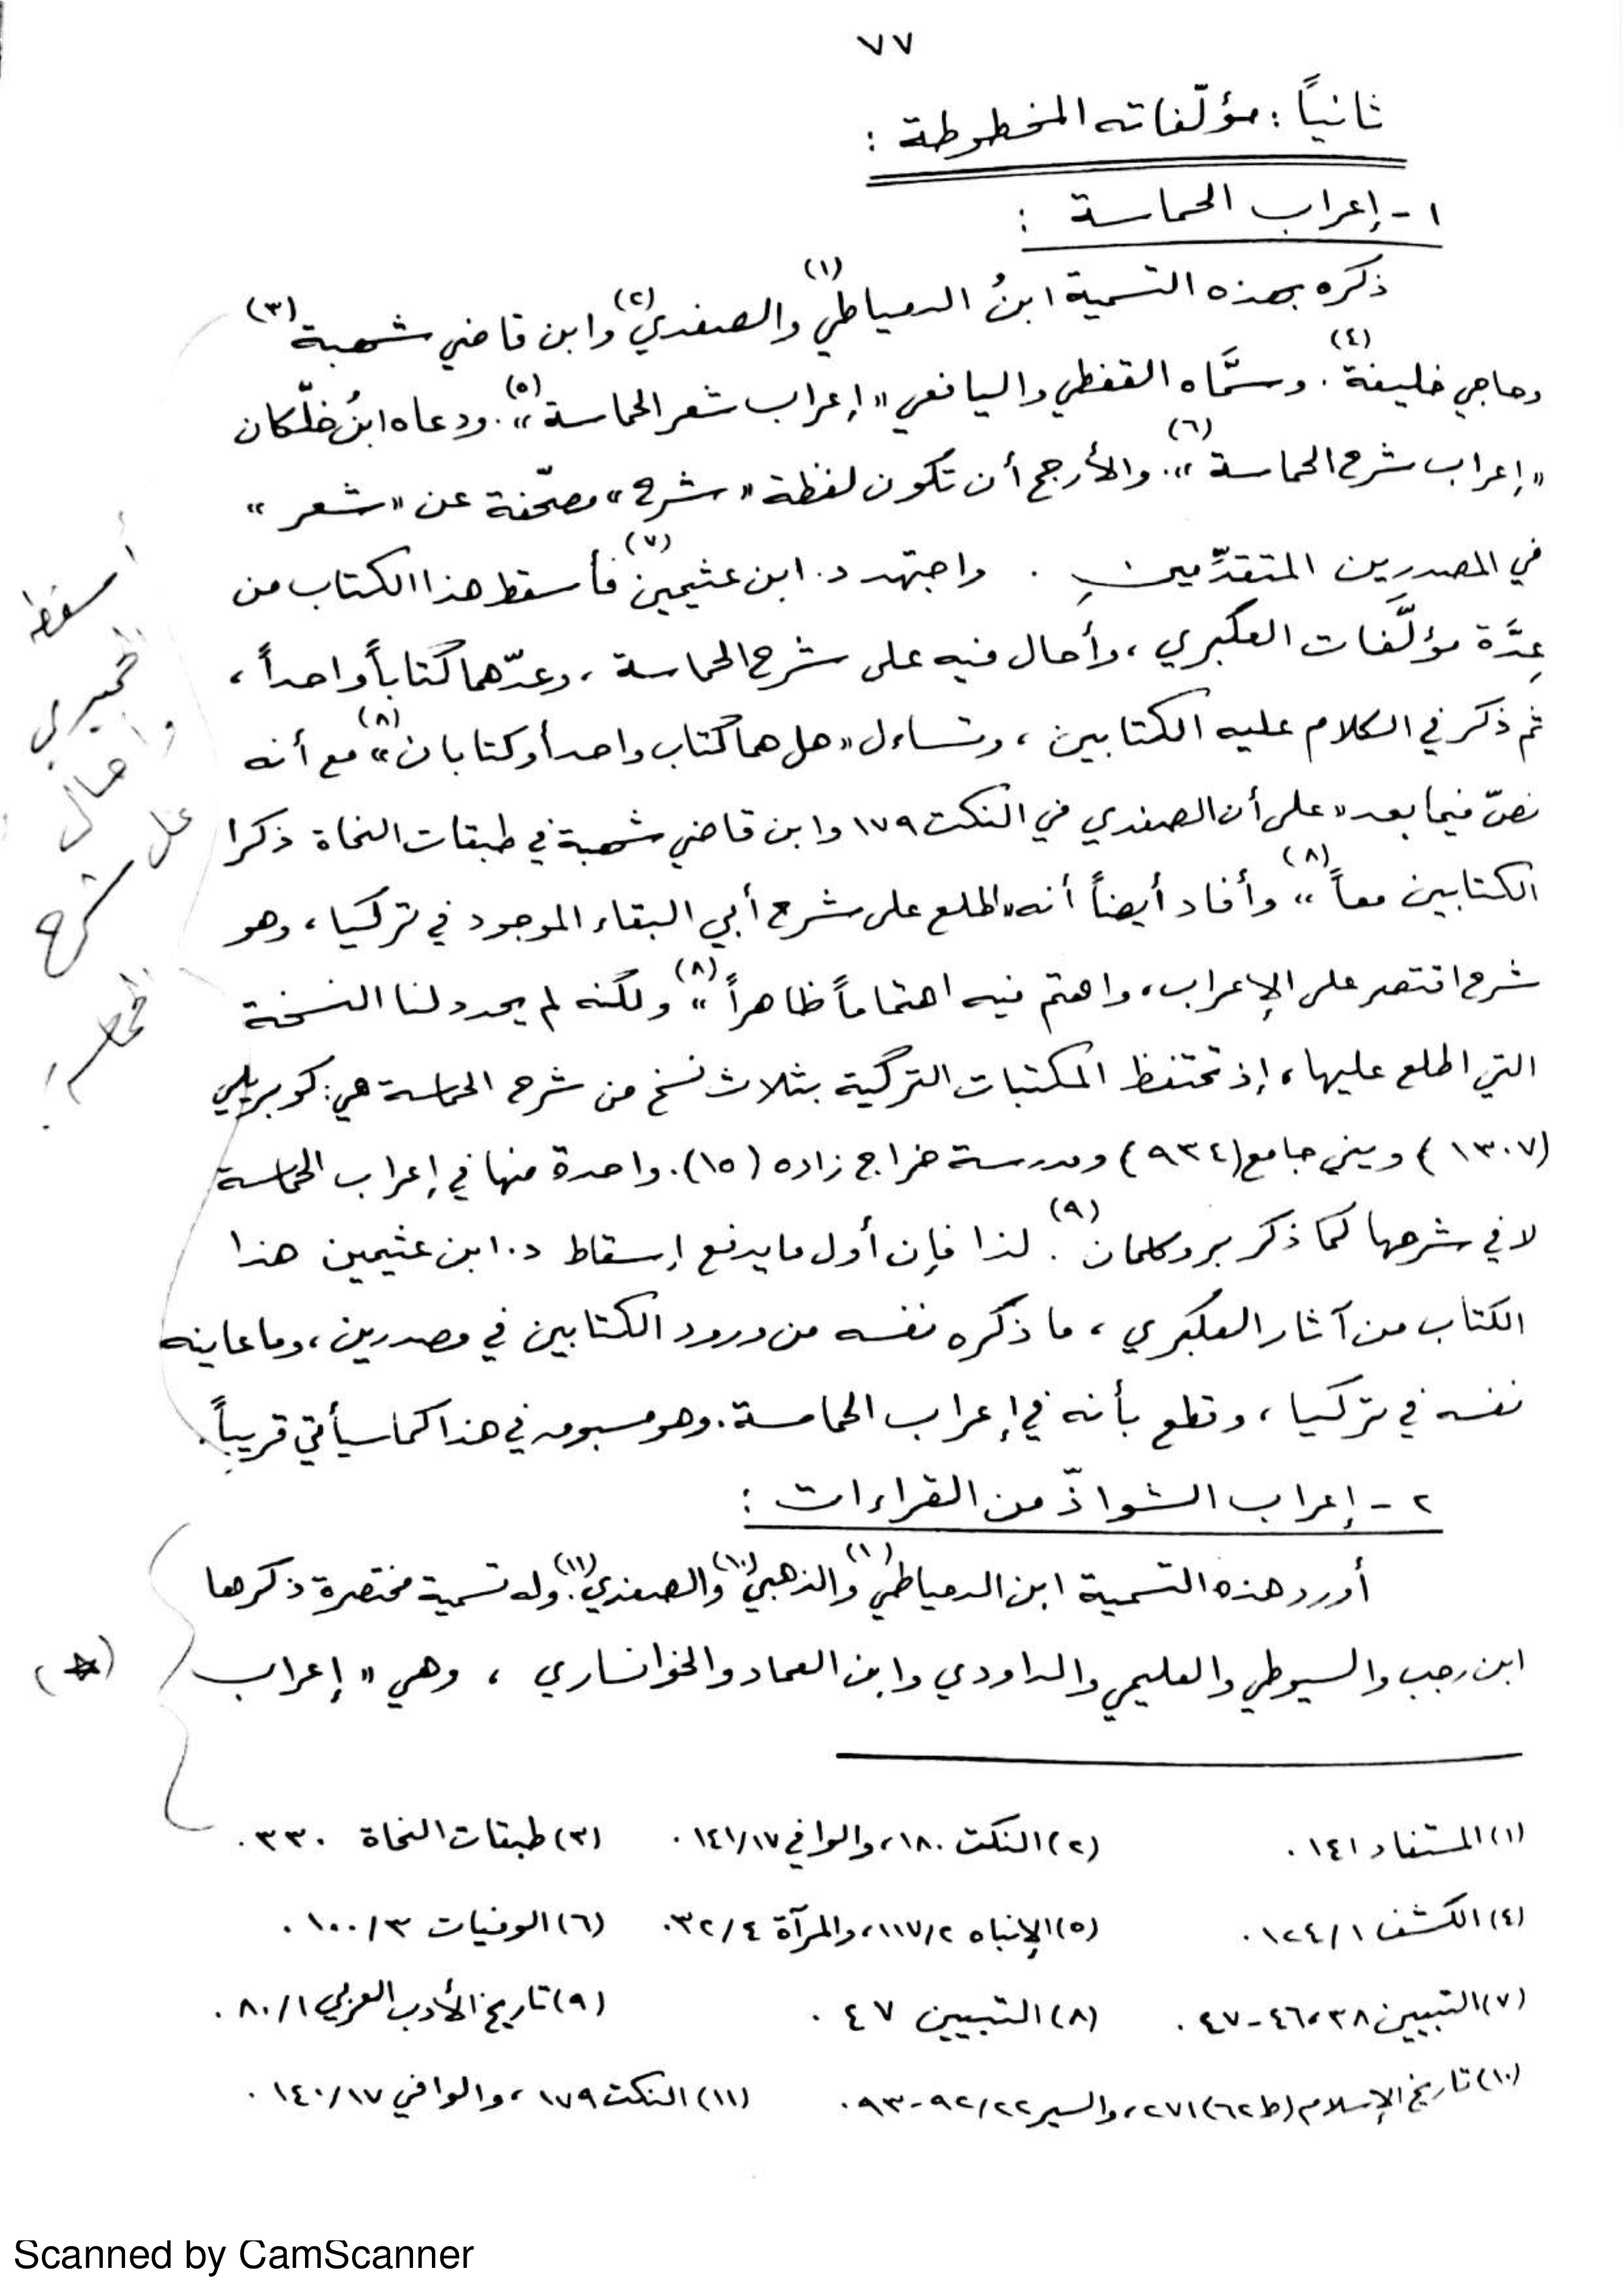 ٧٧
ثانياً : مؤلّفاته المخطوطة :
١ - إعراب الحماسة :
ذكره بهذه التسمية ابنُ الدمياطي(١) والصفدي(٢) وابن قاضي شهبة(٣)
وحاجي خليفة(٤). وسمَّاه القفطي واليافعي «إعراب شعر الحماسة»(٥). ودعاه ابنُ خلّكان
«إعراب شرح الحماسة»(٦). والأرجح أن تكون لفظة «شرح» مصحّفة عن «شعر»
في المصدرين المتقدِّمينِ . واجتهد د. ابن عثيمين(٧) فأسقط هذا الكتاب من
عِدَّة مؤلَّفات العكبري، وأحال فيه على شرح الحماسة، وعدّهما كتاباً واحداً،
ثم ذكر في الكلام عليه الكتابين، وتساءل «هل هما كتاب واحد أو كتابان»(٨) مع أنه
نصّ فيما بعد «على أن الصفدي في النكت ١٧٩ وابن قاضي شهبة في طبقات النحاة ذكرا
الكتابين معاً»(٨) وأفاد أيضاً أنه «اطلع على شرح أبي البقاء الموجود في تركيا، وهو
شرح اقتصر على الإعراب، واهتم فيه اهتماماً ظاهراً»(٨) ولكنه لم يحدد لنا النسخة
التي اطلع عليها، إذ تحتفظ المكتبات التركية بثلاث نسخ من شرح الحماسة هي: كوبريلي
(١٣٠٧) ويني جامع (٩٣٤) ومدرسة خراج زاده (١٥). واحدة منها في إعراب الحماسة
لا في شرحها كما ذكر بروكلمان(٩). لذا فإن أول ما يدفع إسقاط د. ابن عثيمين هذا
الكتاب من آثار العكبري، ما ذكره نفسه من ورود الكتابين في مصدرين، وما عاينه
نفسه في تركيا، وقطع بأنه في إعراب الحماسة. وهو مسبوق في هذا كما سيأتي قريباً.
٢ - إعراب الشواذّ من القراءات :
أورد هذه التسمية ابن الدمياطي(١) والذهبي(١٠) والصفدي(١١). وله تسمية مختصرة ذكرها
ابن رجب والسيوطي والعليمي والداودي وابن العماد والخوانساري، وهي «إعراب
أسقط
وأحال
على
شرح
(١) المستفاد ١٤١. (٢) النكت ١٨٠، والوافي ١٤١/١٧. (٣) طبقات النحاة ٣٣٠.
(٤) الكشف ١٢٤/١. (٥) الإنباه ١١٧/٢، والمرآة ٣٢/٤. (٦) الوفيات ١٠٠/٣.
(٧) التبيين ٣٨، ٤٦-٤٧. (٨) التبيين ٤٧. (٩) تاريخ الأدب العربي ٨٠/١.
(١٠) تاريخ الإسلام (ط٦٢) ٢٧١، والسير ٩٢/٢٢-٩٣. (١١) النكت ١٧٩، والوافي ١٤٠/١٧.
Scanned by CamScanner